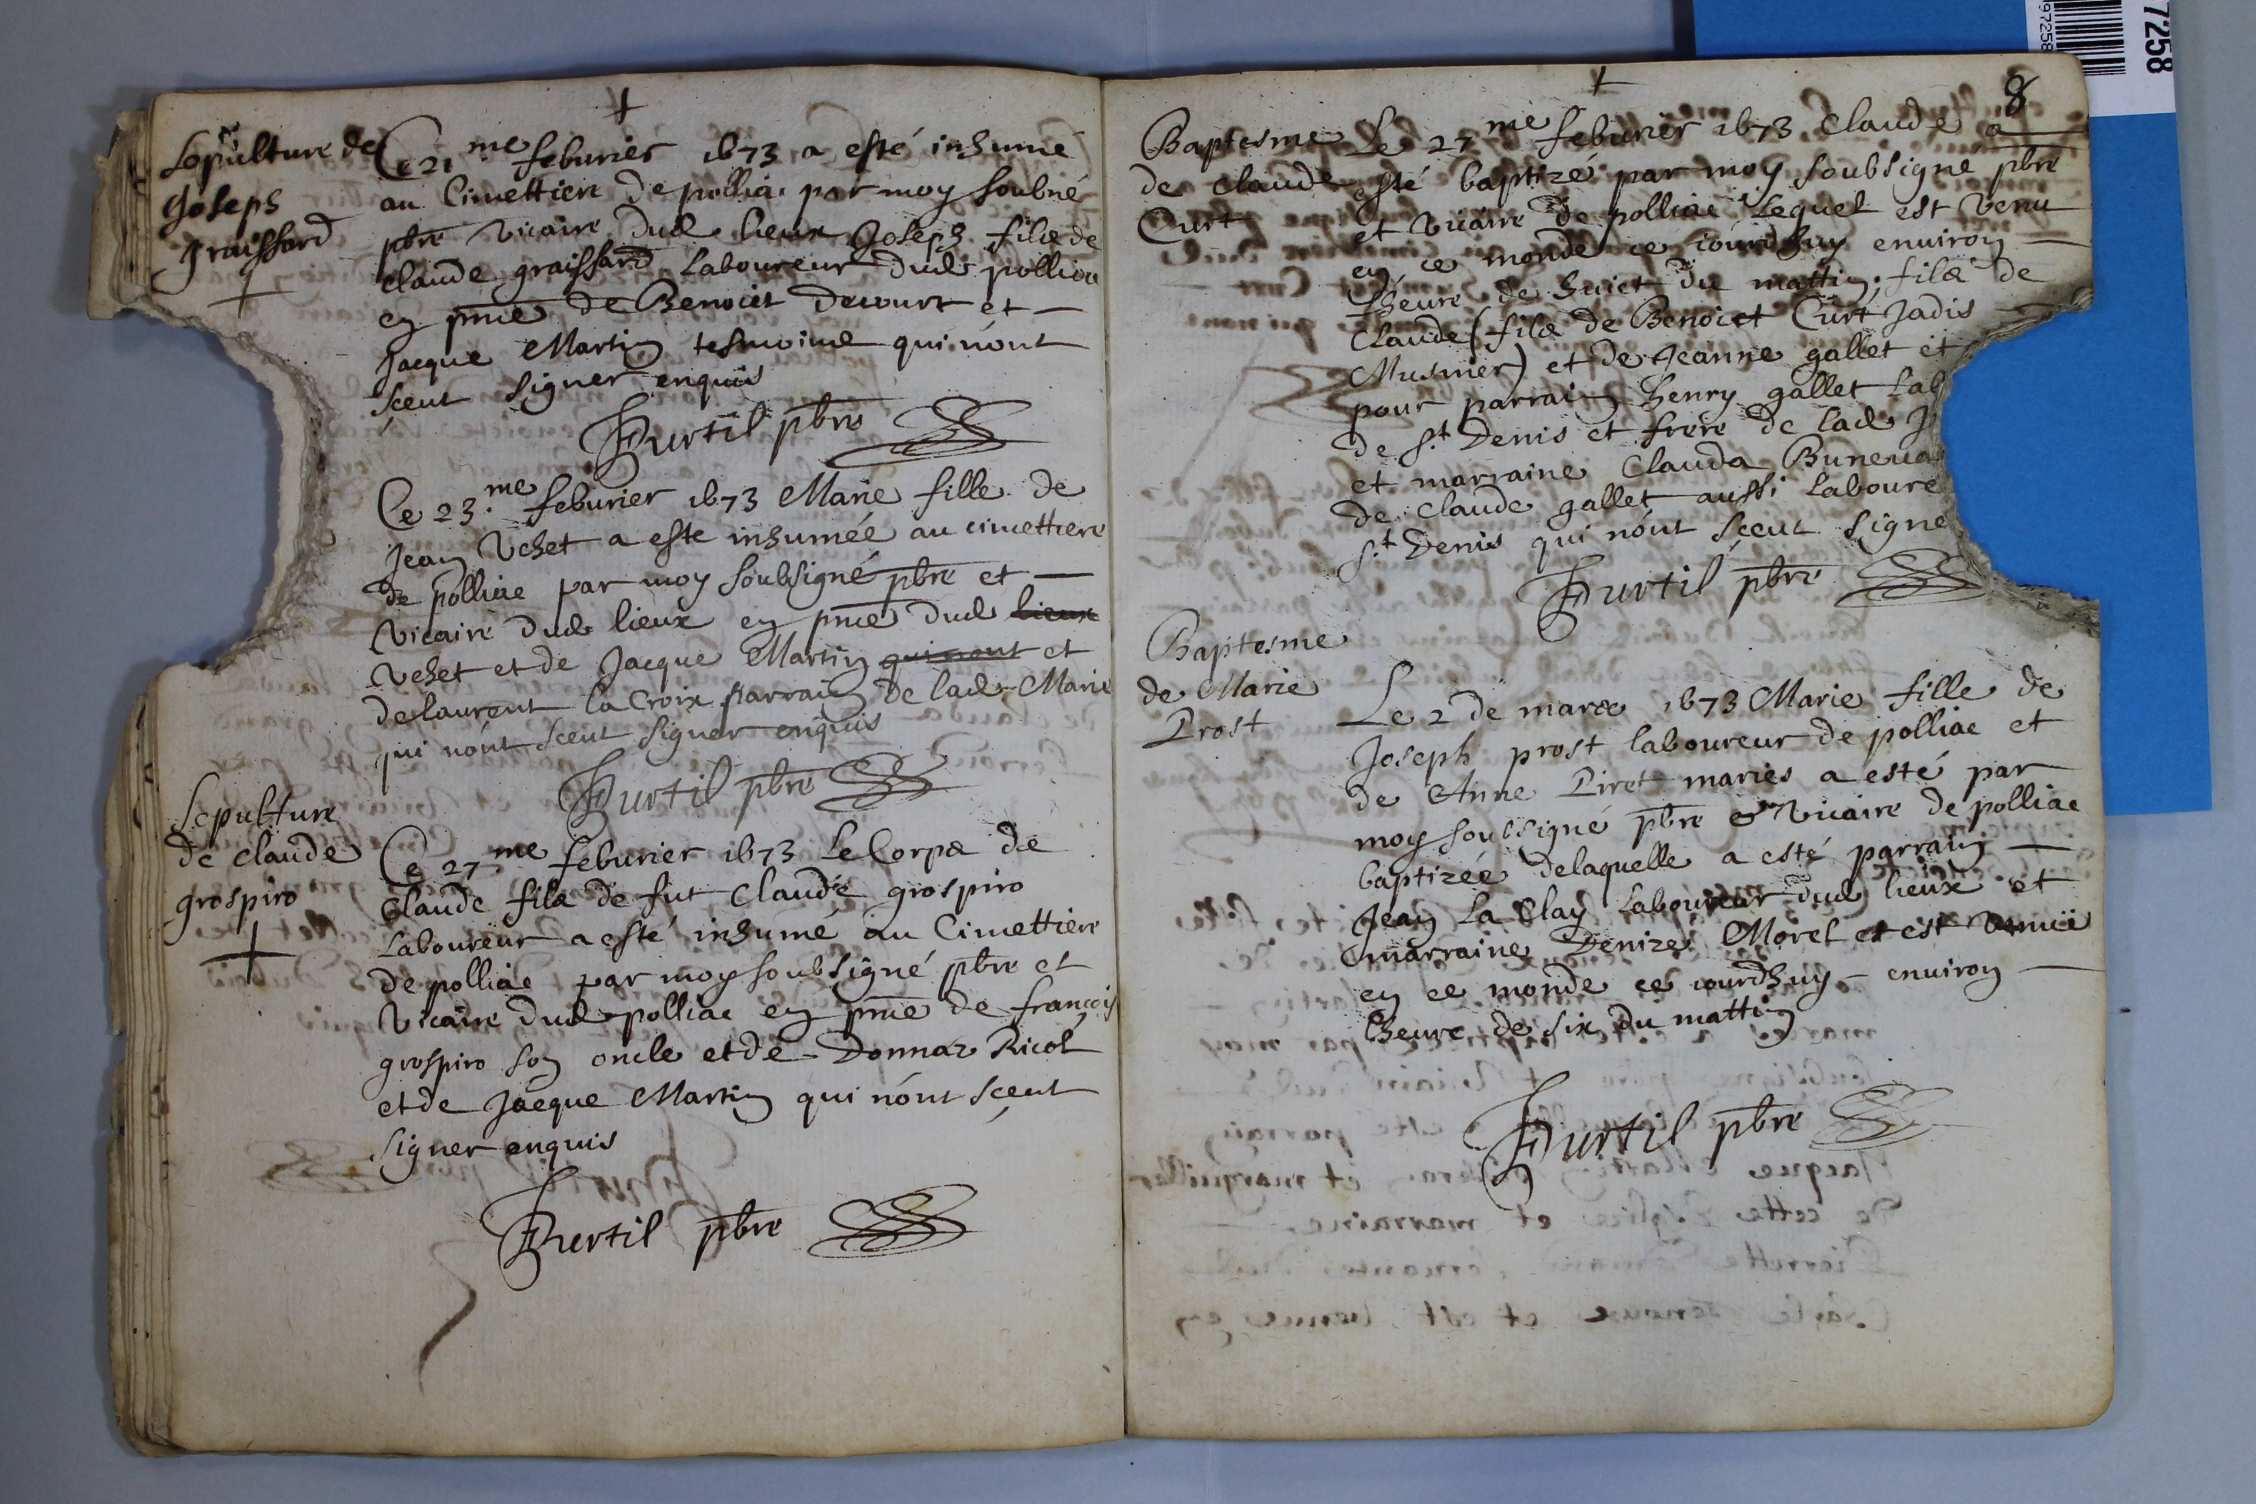 Sepulture de
Joseph
graissard
Ce 21.me feburier 1673 a esté inhumé
au Cimettiere de polliac par moy soubné
pbre vicaire dud lieux Joseph filz de
Claude graissard Laboureur dud polliac
en pnce de Benoict Decourt et
Jacque Martin tesmoind qui nónt
sceut signer enquis
Furtil pbre
Ce 23.me feburier 1673 Marie fille de
Jean Vehet a este inhumée au cimettiere
de polliac par moy soubsigné pbre et
Vicaire dud lieux en pnce dud lieux
Vehet et de Jacque Martin qui nont et
de laurent la Croix parrain de lad Marie
qui nónt sceut signer enquis
Furtil pbre
Sepulture
de claude
grospiro
Ce 27.me feburier 1673 Le Corps de
Claude filz de fut Claude grospiro
Laboureur a esté inhumé au Cimettiere
de polliac par moy soubsigné pbre et
Vicaire dud polliac en pnce de françois
grospiro son oncle et de Donnaz Ricol
et de Jacque Martin qui nónt sceut
signer enquis
Furtil pbre
8
Baptesme
de Claude
Curt
Le 27.me feburier 1673 Claude a
esté baptizé par moy soubsigné pbre
et vicaire de polliac Lequel est venu
en ce monde ce iourdhuy environ
lheure de huict du mattin, filz de
Claude (filz de Benoict Curt Jadis
Musnier) et de Jeanne gallet et
pour parrain henry gallet Lab
de St Denis et frere de lad J
et marraine Clauda Buneua
de Claude gallet aussi Laboure
St Denis qui nónt sceut signe
Furtil pbre
Baptesme
de Marie
Prost
Le 2 de mars 1673 Marie fille de
Joseph prost laboureur de polliac et
de Anne Piret mariés a esté par
moy soubsigné pbre & Vicaire de polliac
baptizée delaquelle a esté parrain
Jean La Clay Laboureur dud lieux et
marraine Denize Morel et est venüe
en ce monde ce iourdhuy environ
lheure de six du mattin
Furtil pbre
7258